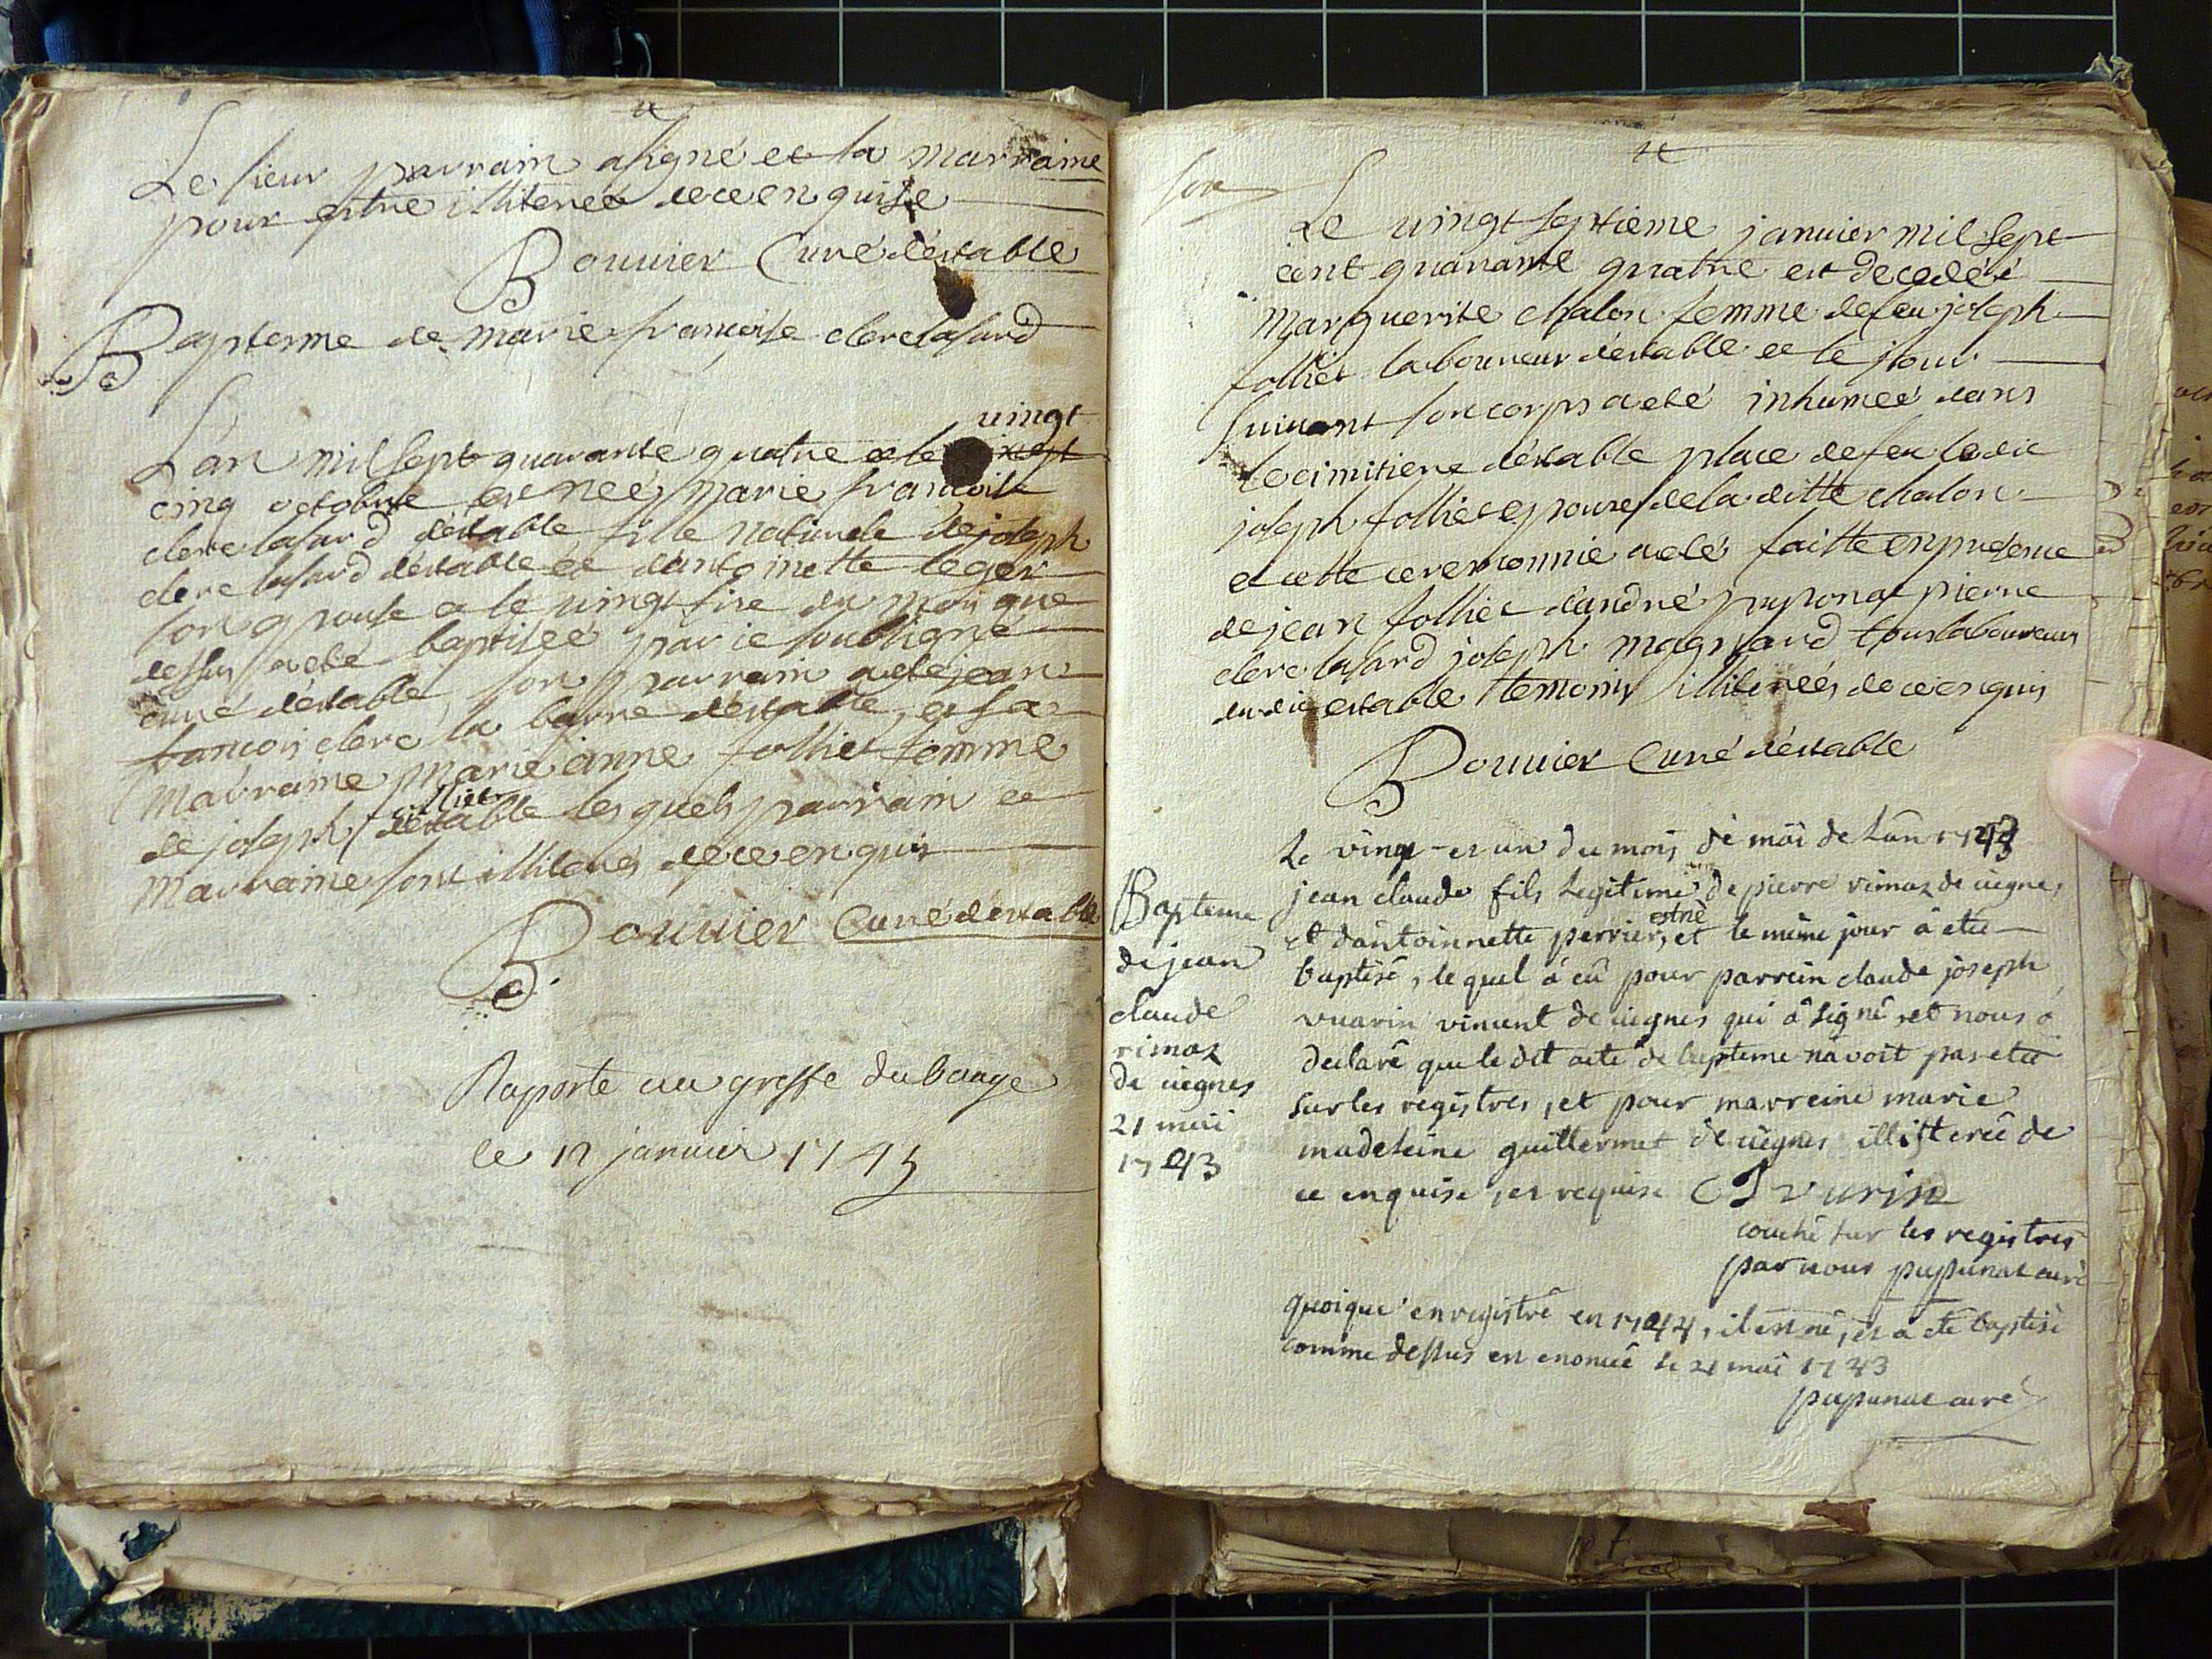 Le sieur parrain a signé et la marraine
pour estre illiteréé de ce enquise
Bouuier Curé déstable
Baptesme de marie francoise clerc lasard
L'an mil sept quarante quatre et le
uingt
cinq octobre est néé marie francoise
clerc lasard déstable fille naturele de joseph
clerc lasard déstable et dántoinette leger
son epouse et le uingt sise du moy que
dessus a eté baptiséé par ie soubsigné
curé déstable, son parrain a eté jean
francois clerc la barre déstable, et sa
marraine marie anne folliet femme
de joseph
déstable les quels parrain et
marraine sont illiterés de ce enquis
Bouuier Curé déstable
Raporte au greffe du bauge
le 12 janvier 1745
Le uingt septieme januier mil sept
cent quarante quatre est decedéé
marguerite chalon femme de feu joseph
folliet laboureur déstable et le jour
suiuant son corps a eté inhuméé dans
le cimitiere déstable place de feu le dit
joseph folliet epoux de la ditte chalon
et cette ceremonnie a eté faitte en presence
de jean folliet dándré pupona pierre
clerc lasard joseph magnard tous laboureurs
du dit estable temoins illiteréés de ce enquis
Bouuier Curé déstable
Bapteme
de jean
claude
rimaz
de
21 mai
1743
Le vingt-et un du mois de mai de lan 1743
jean claude fils legitime de pierre rimaz de
estné
et dantoinnette perrier, et le même jour à etée
baptisé, le quel à eû pour parrein claude joseph
vuarin vincent de qui â signé et nous â
declarê que le dit acte de bapteme navoit pas etée
sur les registres, et pour marreine marie
madeleine guillermet de illitterée de
ce enquise, et requise C J vuarin
couché sur les registres
par nous pupunat curé
quoique enregistré en 1744, il est né, et a eté baptisé
comme dessus est enoncé le 21 mai 1743
pupunat curé